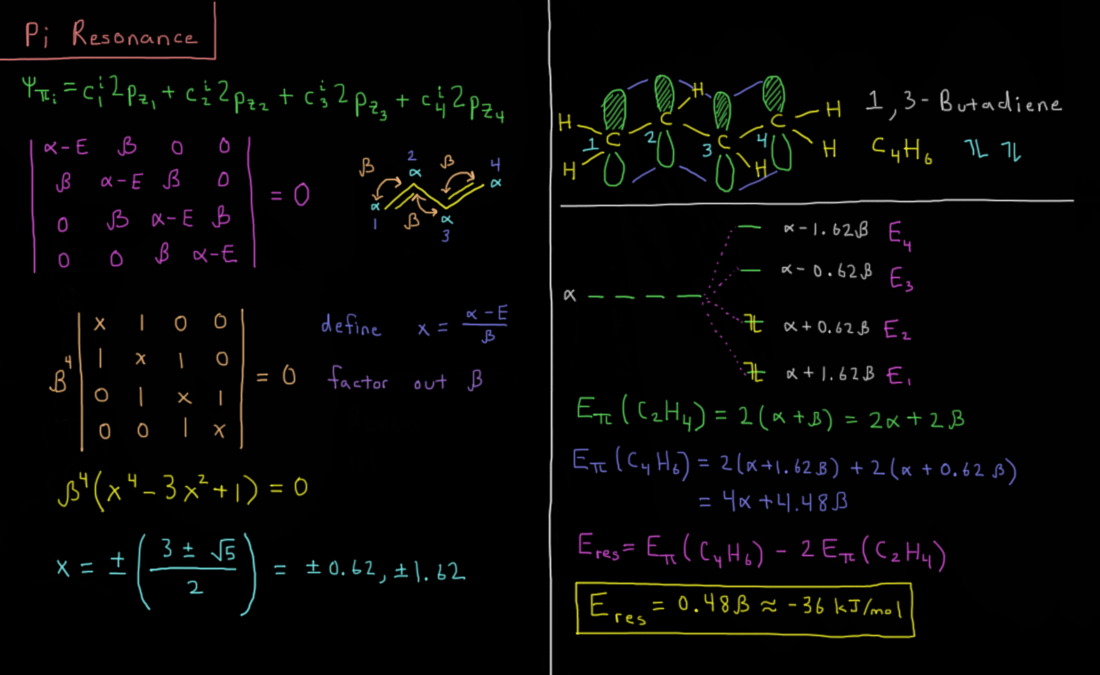 Pi Resonance
Ψπᵢ = c₁ⁱ2p_z₁ + c₂ⁱ2p_z₂ + c₃ⁱ2p_z₃ + c₄ⁱ2p_z₄
| α-E β 0 0 |
| β α-E β 0 | = 0
| 0 β α-E β |
| 0 0 β α-E |
2 β β 4
α α
α β α
1 3
| x 1 0 0 |
β⁴ | 1 x 1 0 | = 0
| 0 1 x 1 |
| 0 0 1 x |
define x = (α-E)/β
factor out β
β⁴(x⁴ - 3x² + 1) = 0
x = ±((3 ± √5)/2) = ±0.62, ±1.62
H H
H 1 C 2 C 3 C 4 C H
H H
1,3-Butadiene
C₄H₆ ⥮ ⥮
α
α-1.62β E₄
α-0.62β E₃
α+0.62β E₂
α+1.62β E₁
Eπ(C₂H₄) = 2(α+β) = 2α+2β
Eπ(C₄H₆) = 2(α+1.62β) + 2(α+0.62β)
= 4α+4.48β
E_res = Eπ(C₄H₆) - 2Eπ(C₂H₄)
E_res = 0.48β ≈ -36 kJ/mol